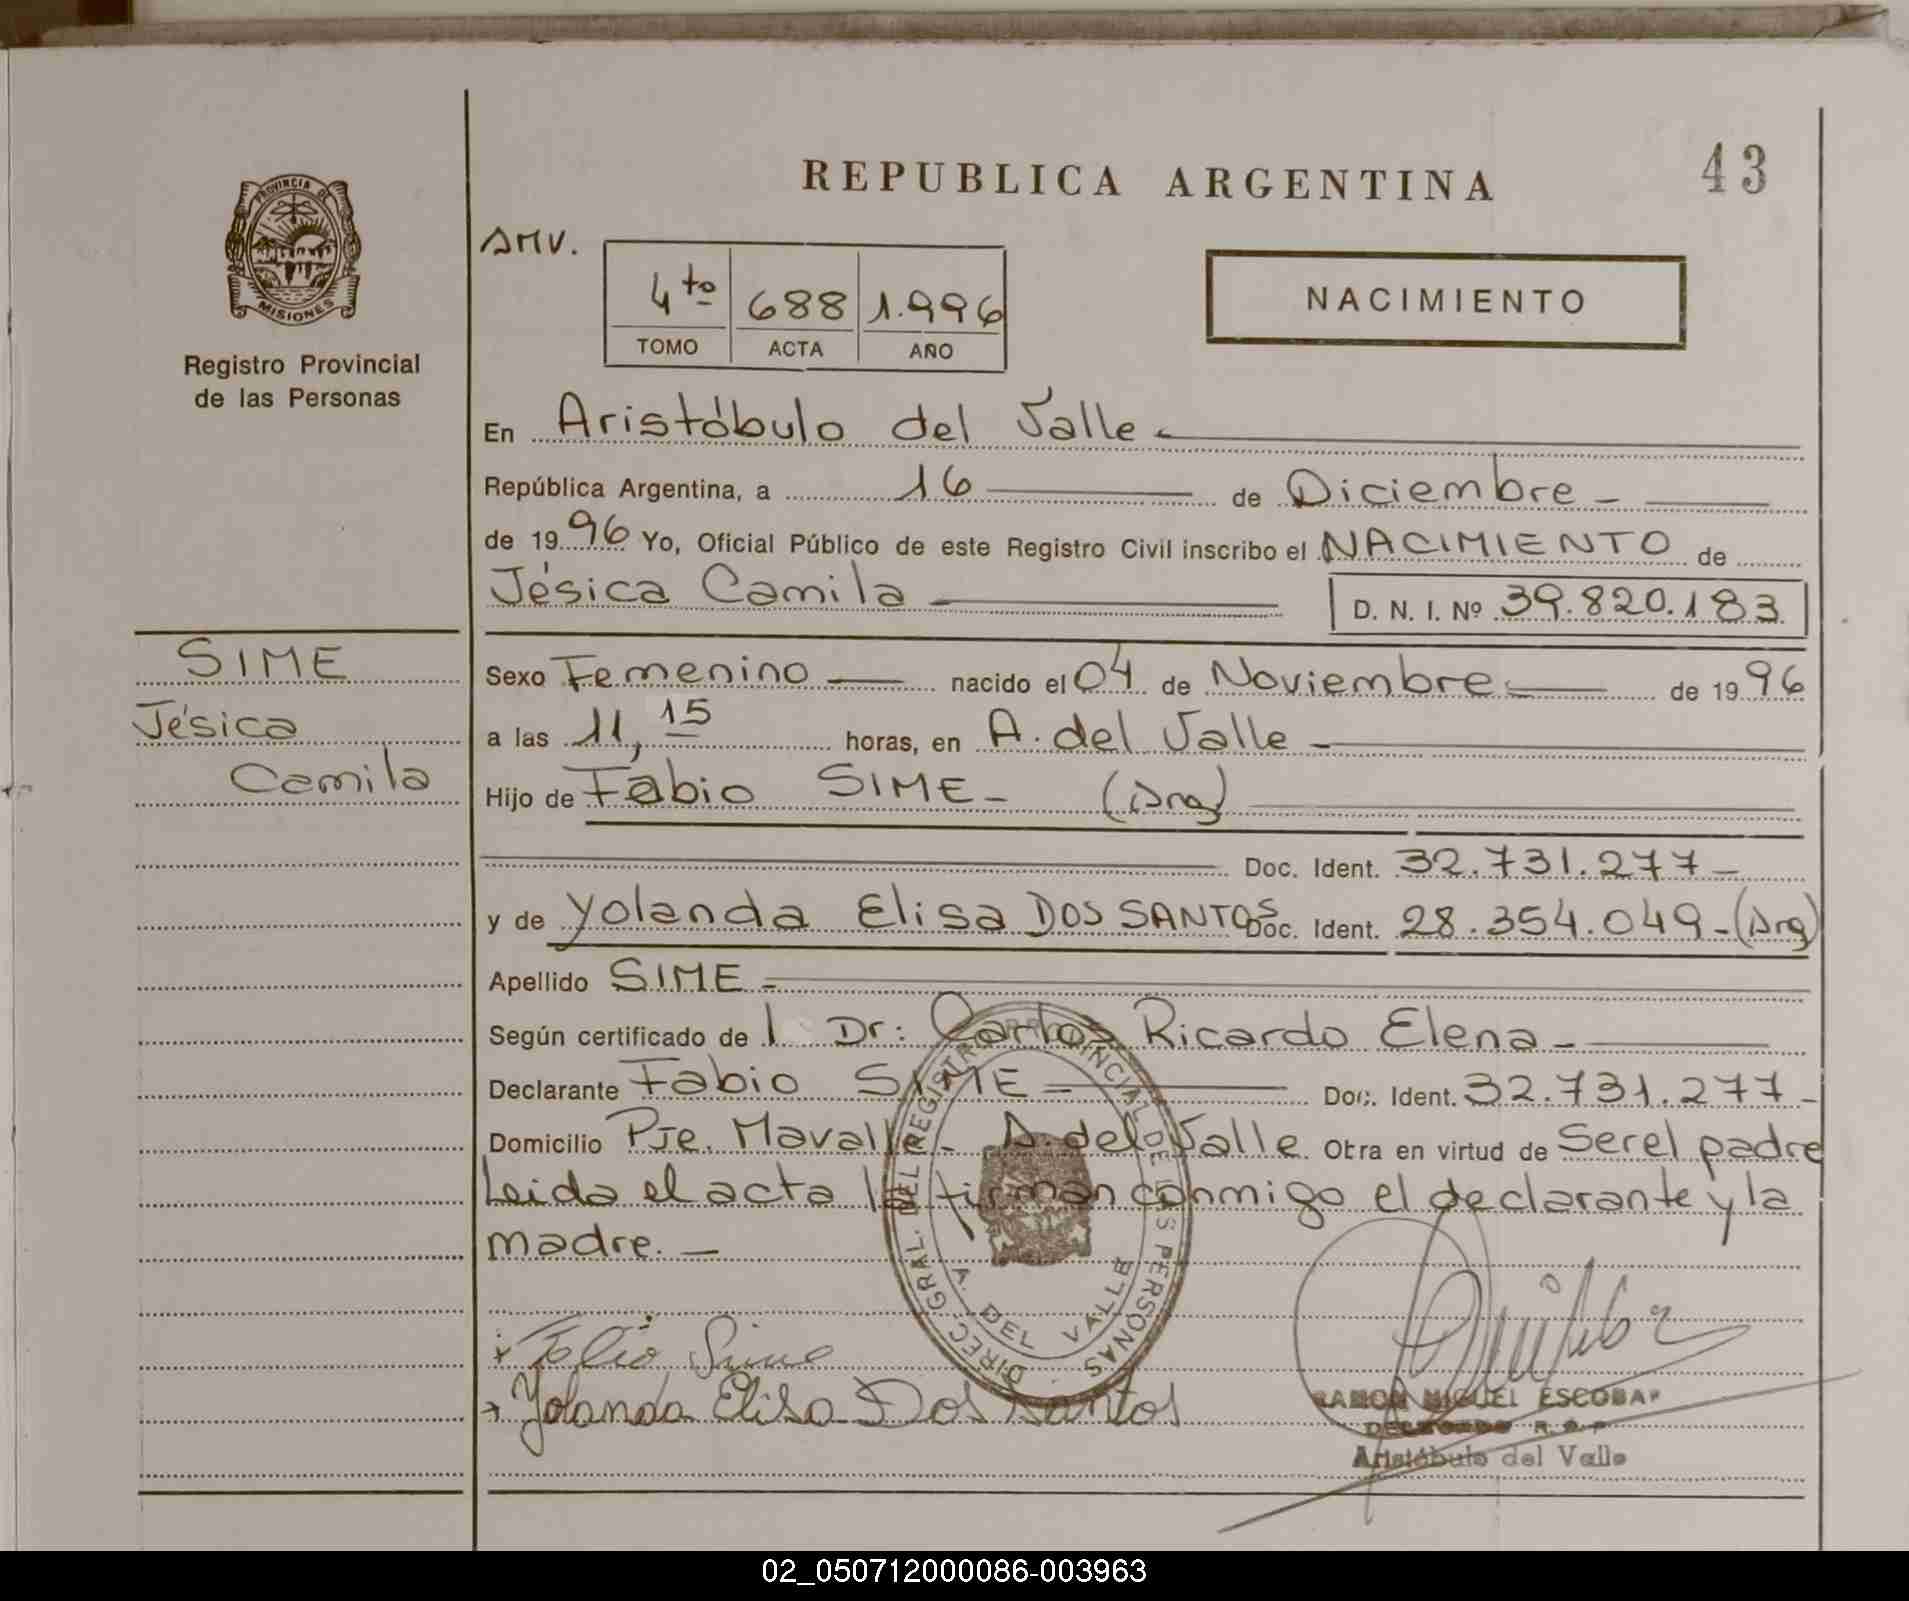 REPUBLICA ARGENTINA
43
PROVINCIA DE
MISIONES
Registro Provincial
de las Personas
AMV.
4to 688 1.996
TOMO ACTA AÑO
NACIMIENTO
En Aristóbulo del Valle
República Argentina, a 16 de Diciembre
de 1996 Yo, Oficial Público de este Registro Civil inscribo el NACIMIENTO de
Jésica Camila D. N. I. Nº 39.820.183
SIME
Jésica
Camila
Sexo Femenino nacido el 04 de Noviembre de 1996
a las 11,15 horas, en A. del Valle
Hijo de Fabio SIME (Arg)
Doc. Ident. 32.731.277
y de Yolanda Elisa DOS SANTOS Doc. Ident. 28.354.049 (Arg)
Apellido SIME
Según certificado de l Dr: Carlos Ricardo Elena
Declarante Fabio SIME Doc. Ident. 32.731.277
Domicilio Pje. Mavalle A. del Valle Obra en virtud de Ser el padre
Leida el acta la firman conmigo el declarante y la
madre.
DIREC. GRAL. DEL REGISTRO PROVINCIAL DE LAS PERSONAS
A. DEL VALLE
Fabio Sime
Yolanda Elisa Dos Santos
RAMON MIGUEL ESCOBAR
Aristóbulo del Valle
02_050712000086-003963